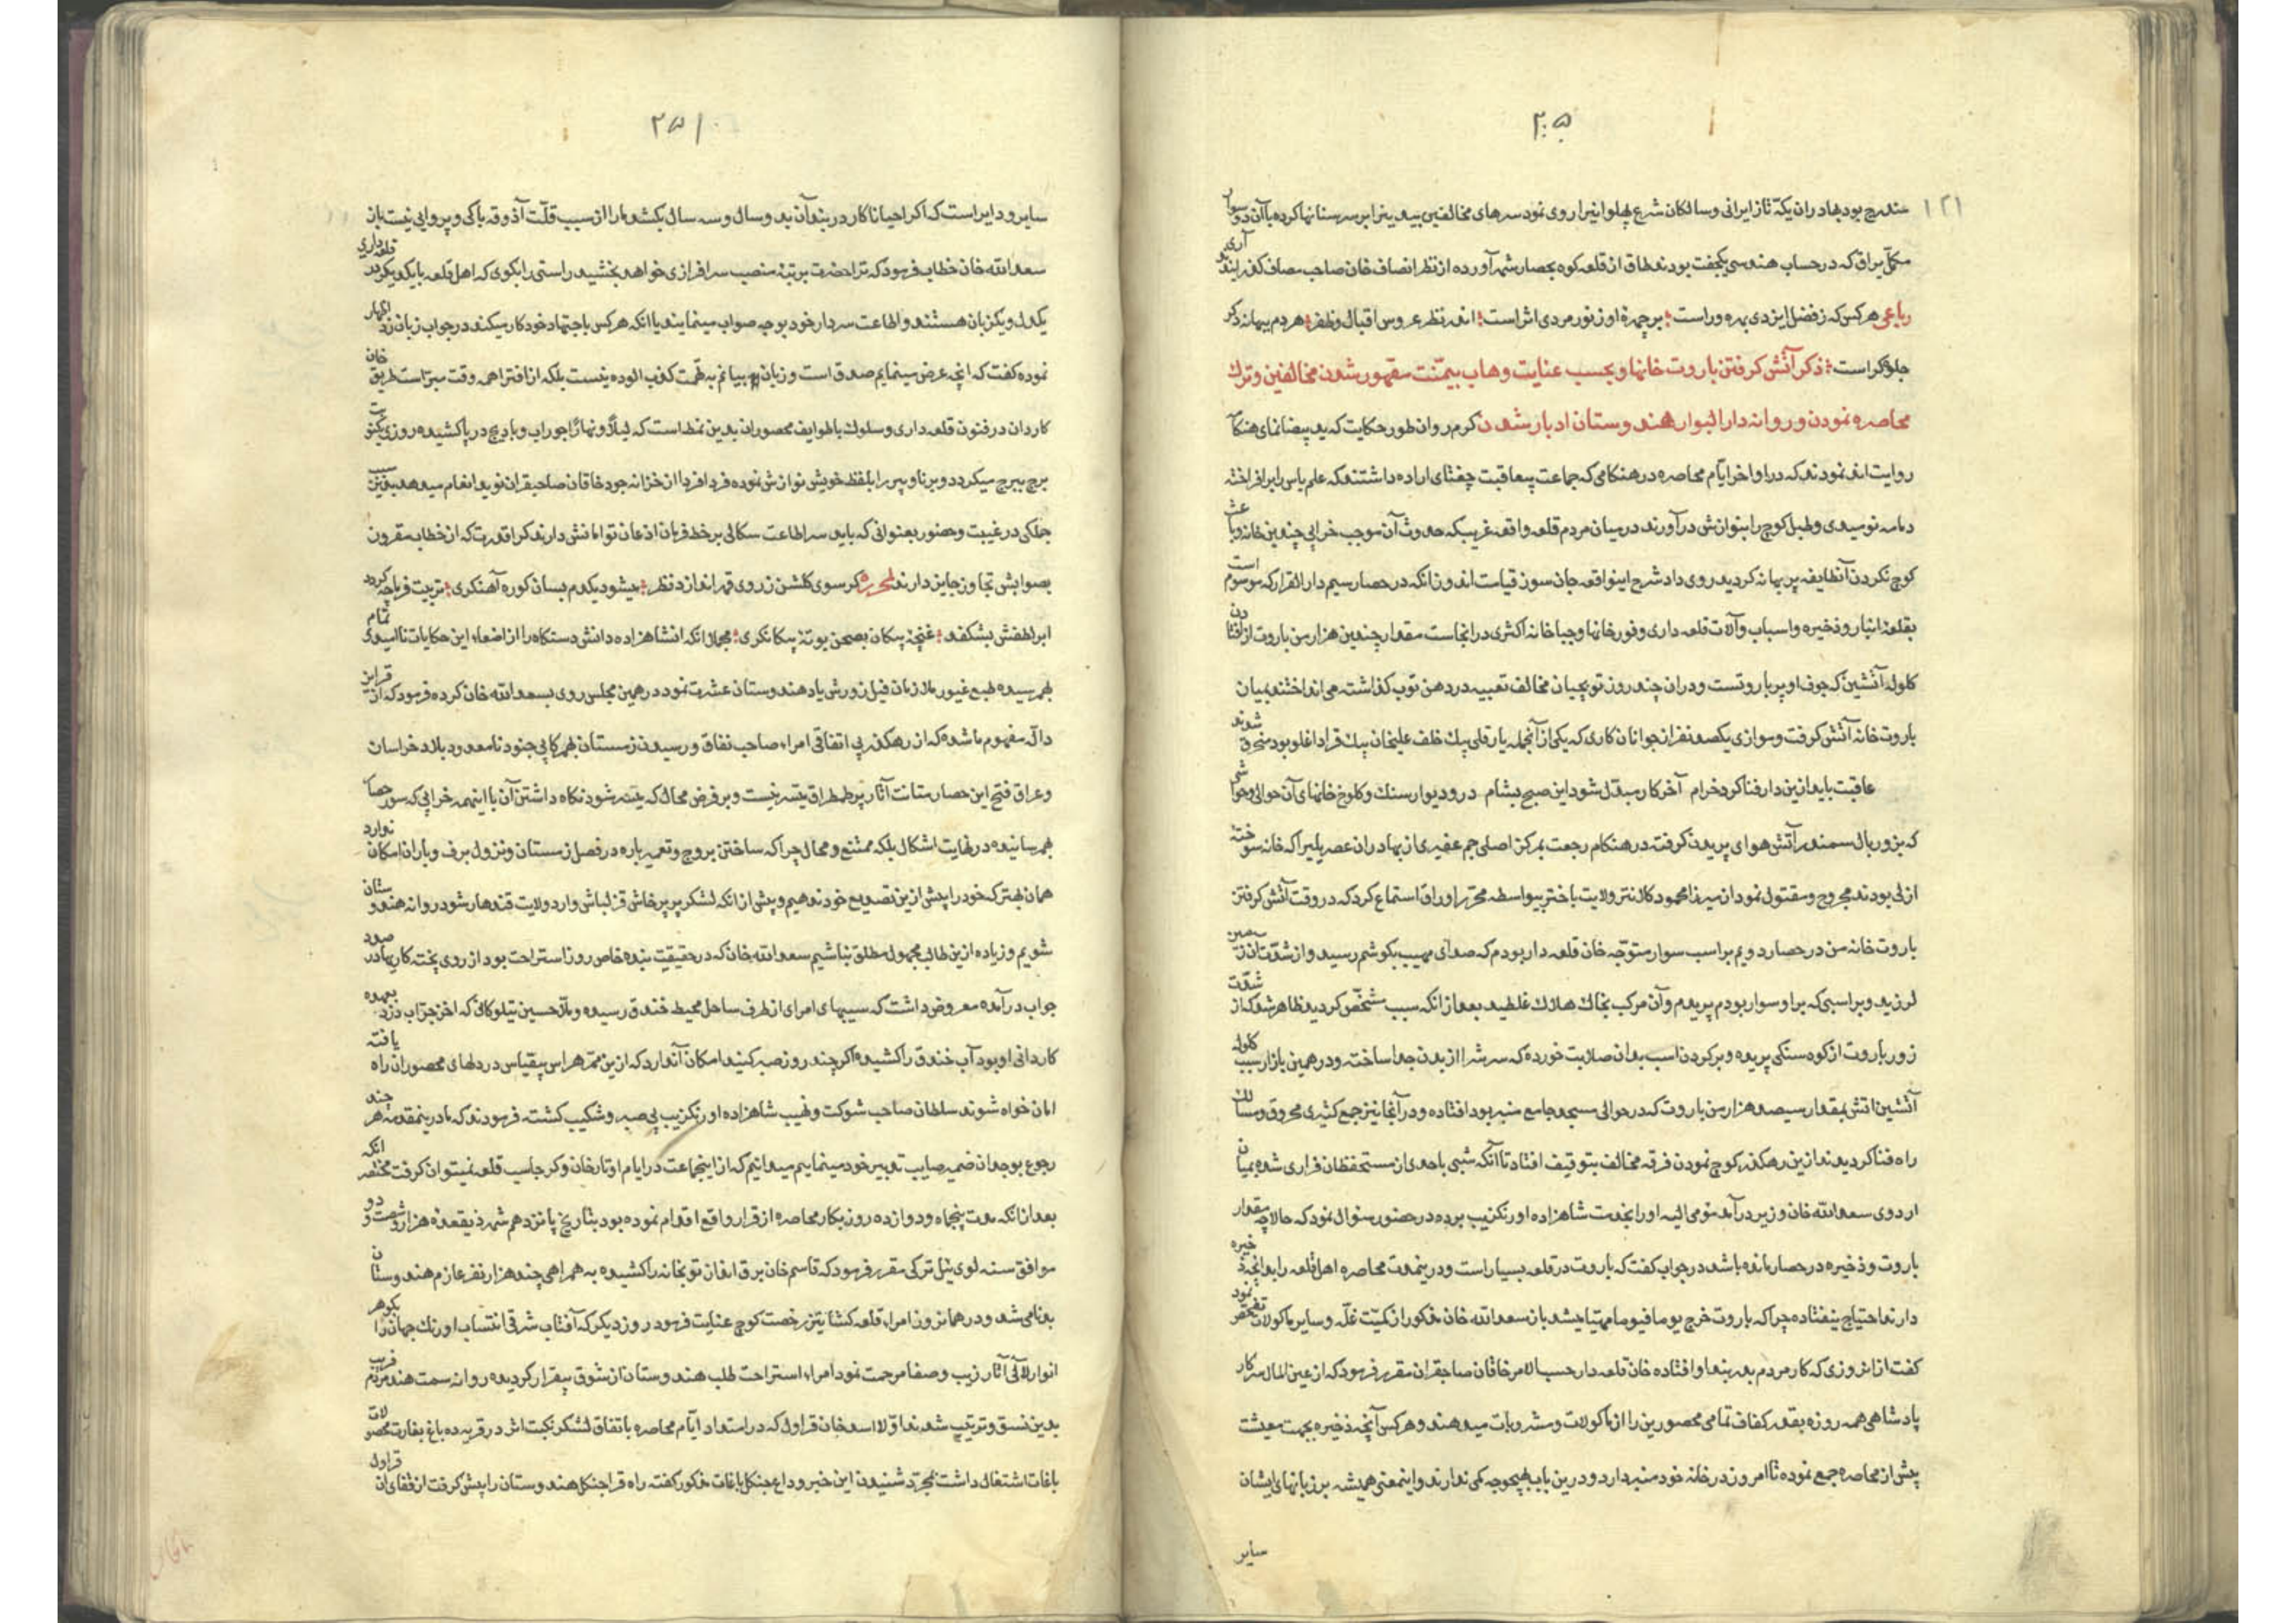 ۲۰۵
۱۲۱
مندرج بود بهادران یکه تاز ایرانی و سالکان شرع پهلوانی را روی نمود سرهای مخالفین بیدین را بر سر سنانها کرده با آن دو سوار
مکمل یراق که در حساب هندسی یکجفت بودند طاق از قلعه کوه بحصار شهر آورده از نظر انصاف خان صاحب مصاف گذرانیدند آری
رباعی هر کس که ز فضل ایزدی بهره ور است : بر چهرۀ او ز نور مردی اثر است : اندر نظر عروس اقبال و ظفر : هر دم ببهانه دگر
جلوه گر است : ذکر آتش گرفتن باروت خانها و بحسب عنایت وهاب بیمنت مقهور شدن مخالفین و ترک
محاصره نمودن و روانه دار البوار هندوستان ادبار شدن گرم روان طور حکایت که ید بیضا نمای هنگامه
روایت اند نمودند که در اواخر ایام محاصره در هنگامی که جماعت بیعاقبت چغتای اراده داشتند که علم یاس را بر افراخته
دمامه نومیدی و طبل کوچ را بنوازش در آورند در میان مردم قلعه واقعه غریبکه حدوث آن موجب خرابی چندین خانه و باعث
کوچ نکردن آنطایفه پر بهانه گردید روی داد شرح اینواقعه جان سوز قیامت اندوز آنکه در حصار سیم دار القرار که موسوم است
بقلعه انبار و ذخیره و اسباب و آلات قلعه داری و قورخانها و جباخانه اکثری در انجاست مقدار چندین هزار من باروت از افتادن
کلوله آتشین که جوف او پر باروتست و در ان چند روز توپچیان مخالف تعبیه در دهن توپ گذاشته می انداختند بمیان
باروت خانه آتش گرفت و موازی یکصد نفر از جوانان کاری که یکی از آنجمله یارقلی بیک خلف علیخان بیک قراداغلو بود محرق شوند
عاقبت باید ازین دار فنا کرد خرام آخر کار مبدل شود این صبح بشام در و دیوار سنک و کلوخ خانهای آن حوالی و حواشی
که بزور بال سمندر آتش هوای پریدن گرفته در هنکام رجعت بمرکز اصلی جم غفیری از بهادران عصر پلیر اکه خانه سوخته
ازلی بودند مجروح و مقتول نمود از میرزا محمود کلانتر ولایت باختر بیواسطه محرر اوراق استماع کرد که در وقت آتش گرفتن
باروت خانه من در حصار دویم بر اسب سوار متوجه خان قلعه دار بودم که صدای مهیب بگوشم رسید و از شدت آن زمین
لرزید و بر اسبی که بر او سوار بودم پریدم و آن مرکب بخاک هلاک غلطید بعد از انکه سبب مشخص گردید ظاهر شد که از شدت
زور باروت از کوه سنگی پریده و بر کردن اسب بدان صلابت خورده که سرش را از بدن جدا ساخته و در همین بازار سبب کلوله
آتشین آتش بمقدار سیصد هزار من باروت که در حوالی مسجد جامع منبر بود افتاده و در آنجا نیز جمع کثیری محروق و سالک
راه فنا گردیدند ازین رهکذر کوچ نمودن فرقه مخالف بتوقیف افتاد تا آنکه شبی یا احدی از مستحفظان فراری شده بمیان
اردوی سعد الله خان وزیر در آمد مومی الیه او را بخدمت شاهزاده اورنکزیب برده در حضور سئوال نمود که حالا چه مقدار
باروت و ذخیره در حصار مانده باشد در جواب گفت که باروت در قلعه بسیار است و درینمدت محاصره اهل قلعه را بدانچه ذخیره
دارند احتیاج نیفتاده چرا که باروت خرج یوما فیوما مهیا میشد باز سعد الله خان مذکور از کمیت غله و سایر ماکولات تفحص نمود
گفت از انروزی که کار مردم بدر بندا و افتاده خان قلعه دار حسب الامر خاقان صاحبقران مقرر فرمود که از عین المال سرکار
پادشاهی همه روزه بقدر کفاف تمامی محصورین را از ماکولات و مشروبات میدهند و هر کس آنچه ذخیره بجهت معیشت
پیش از محاصره جمع نموده تا امروز در خانه خود منبر دارد و درین باب بهیچوجه کمی ندارند و اینمعنی همیشه بر زبانهای ایشان
سایر
۲۵۱
سایر و دایر است که اگر احیانا کار در بند آن بدو سال و سه سال بکشد ما را از سبب قلت آذوقه باکی و پروایی نیست باز
سعد الله خان خطاب فرمود که ترا حضرت برتبۀ منصب سرافرازی خواهد بخشید راستی را بکوی که اهل قلعه با یکدیکر در قلعه داری
یکدل و یکزبان هستند و اطاعت سردار خود بوجه صواب مینمایند یا انکه هر کس باجتهاد خود کار میکند در جواب زبان زد اظهار
نموده گفت که انچه عرض مینمایم صدق است و زبان بیانم بتهمت کذب الوده نیست بلکه از افترا همه وقت مبراست طریق خان
کاردان در فنون قلعه داری و سلوک با طوایف محصوران بدین نمط است که لیلا و نهارا جوراب و پاپیچ در پا کشیده روزی یک نوبت
برج ببرج میگردد و برنا و پیر را بلفظ خویش نوازش نموده فردا فردا از خزانه جود خاقان صاحبقران نوید انعام میدهد بدین سبب
جملگی در غیبت و حضور بعنوانی که باید سر اطاعت سکالی بر خط فرمان اذعان تو امانش دارند کرا قدرت که از خطاب مقرون
بصوابش تجاوز جایز دارند لمحرره گر سوی گلشن ز روی قهر اندازد نظر : میشود یکدم بسان کوره آهنگری : تربیت فرما چه گردد
ابر لطفش بشکفد : غنچۀ پیکان بصحن بوتۀ پیکانگری : مجملا انکه انشاهزاده دانش دستگاه را از اصغاء این حکایات ناامیدی تمام
بهم رسیده طبع غیور ملازمان فیل زورش یاد هندوستان عشرت نمود در همین مجلس روی بسعد الله خان کرده فرمود که از قراین
داله مفهوم ما شد که از رهکذر بی اتفاقی امراء صاحب نفاق و رسیدن زمستان بهمرکابی جنود نامعدود بلاد خراسان
و عراق فتح این حصار متانت آثار پر طمطراق میسر نیست و بر فرض محال که میسر شود نکاه داشتن آن با اینهمه خرابی که سور حصار
بهم رسانیده در نهایت اشکال بلکه ممتنع و محال چرا که ساختن بروج و تعمیر باره در فصل زمستان و نزول برف و باران امکان ندارد
همان بهتر که خود را پیش ازین تصدیع خود ندهیم و پیش از انکه لشکر پر پرخاش قزلباش وارد ولایت قندهار شود روانه هندوستان
شویم و زیاده ازین طالب مجهول مطلق نباشیم سعد الله خان که در حقیقت بنده خاص روز استراحت بود از روی پخته کاری در صدد
جواب در آمده معروض داشت که سیبهای امرای از طرف ساحل محیط خندق رسیده و ملا حسین تیلوکانی که اخر جراب دزد بعهده
کاردانی او بود آب خندق را کشیده اگر چند روز صبر کنید امکان آندارد که ازین ممر هراس بیقیاس در دلهای محصوران راه یافته
امان خواه شوند سلطان صاحب شوکت و نهیب شاهزاده اورنکزیب بی صبر و شکیب گشته فرمودند که ما درینمقدمه هر چند
رجوع بوجدان ضمیر صایب تدبیر خود مینماییم میدانیم که از اینجماعت در ایام اوتارخان و کرجاسب قلعه نمیتوان گرفت مختصر انکه
بعد از انکه مدت پنجاه و دوازده روز بکار محاصره از قرار واقع اقدام نموده بود بتاریخ پانزدهم شهر ذیقعده هزار و شصت و دو
موافق سنه لوی ئیل ترکی مقرر فرمود که قاسم خان برق انداز توپخانه را کشیده به همراهی چند هزار نفر عازم هندوستان
بدنامی شد و در همانروز امراء قلعه کشا نیز رخصت کوچ عنایت فرمود روز دیگر که آفتاب شرقی انتساب اورنک جهان را بگوهر
انوار لآلی آثار زیب و صفا مرحمت نمود امراء استراحت طلب هندوستان از شوق بیقرار گردیده روانه سمت هند
بدین نسق و ترتیب شدند اولا اسد خان قراول که در امتداد ایام محاصره باتفاق لشکر نکبت اثر در قریه ده باغ بغارت محصولات
باغات اشتغال داشت بمجرد شنیدن این خبر وداع جنکل باغات مذکور گفته راه قراجنکل هندوستان را پیش گرفت از قفای ان قراول